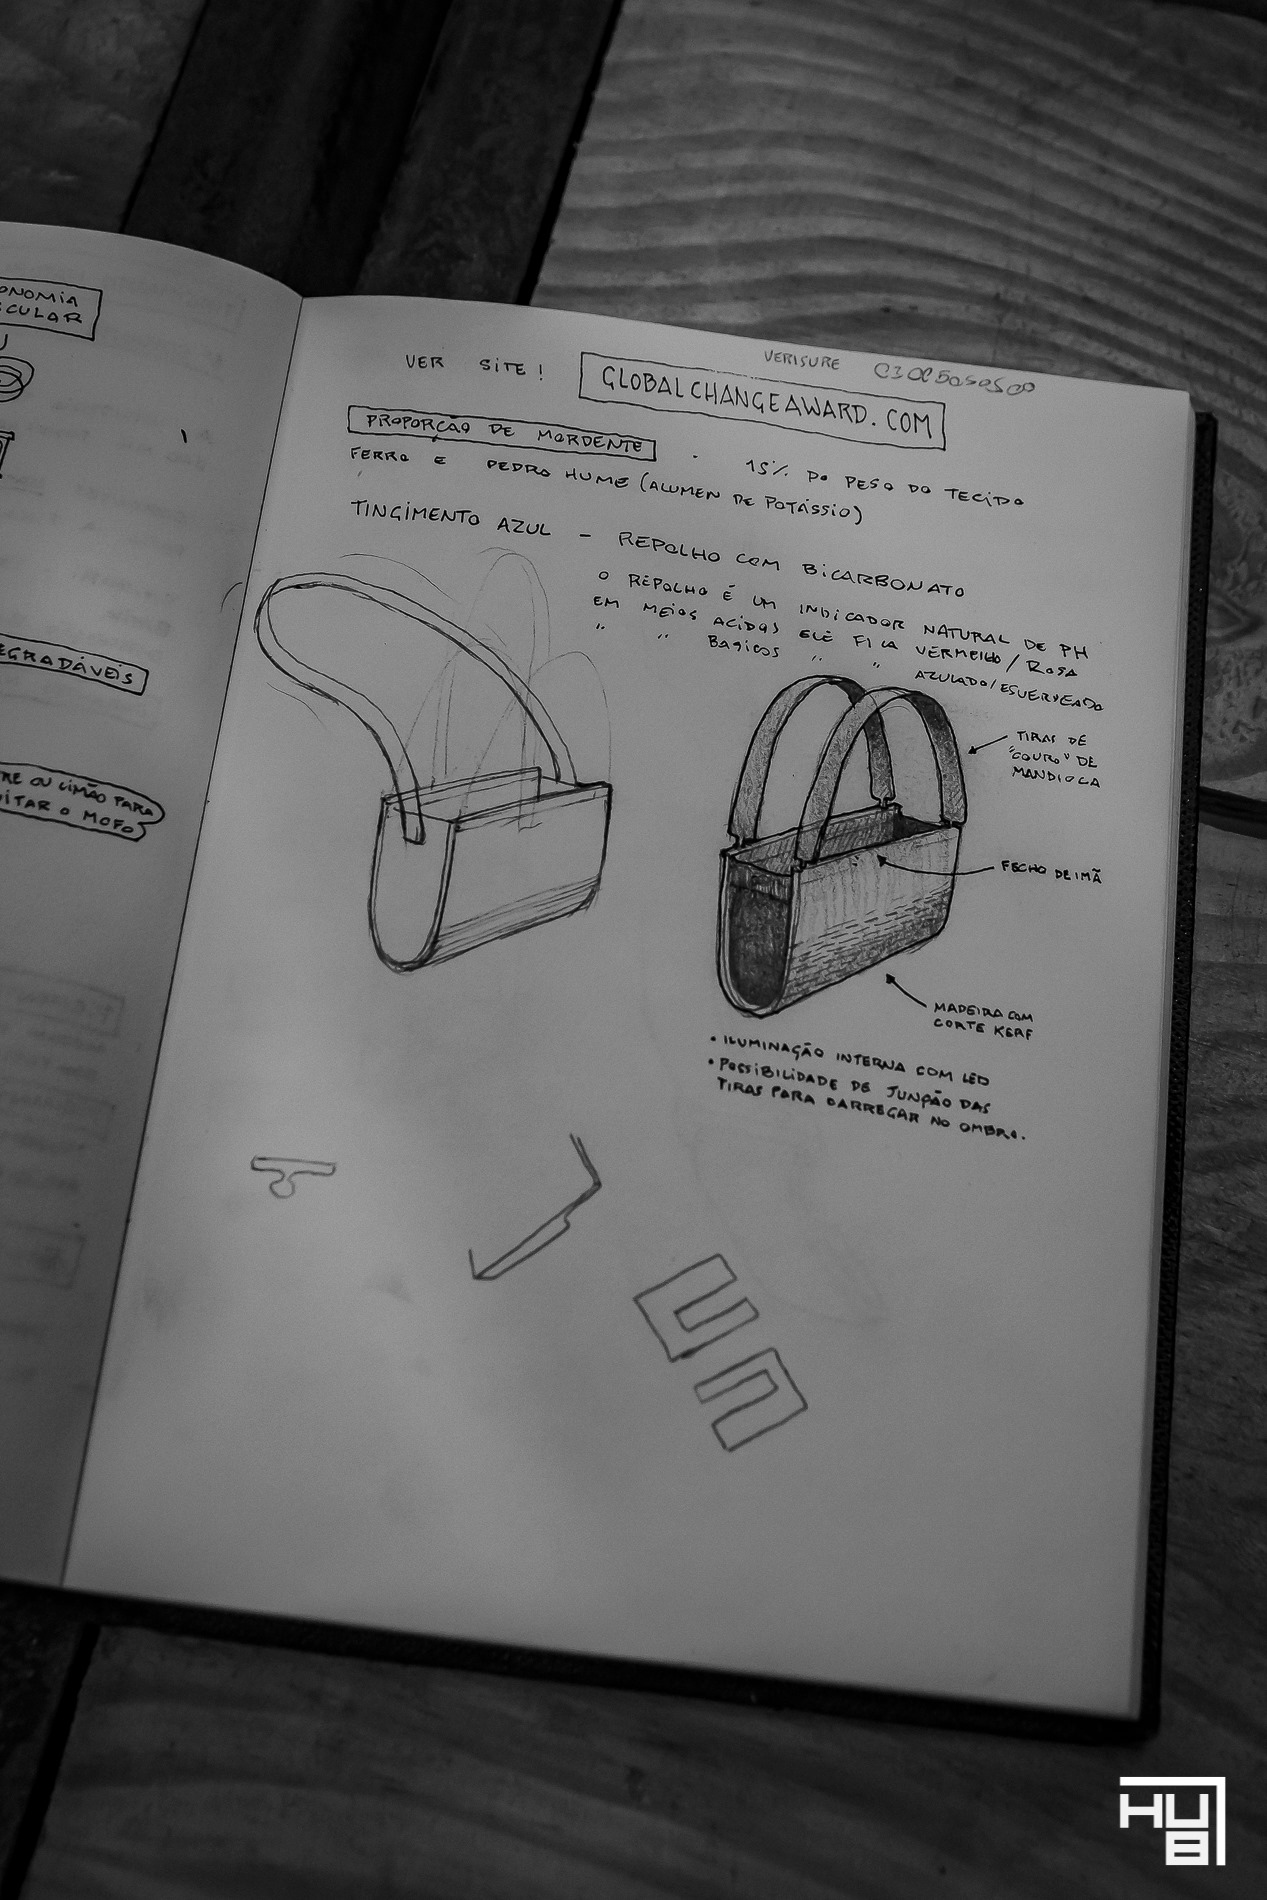 ONOMIA
CULAR
EGRADÁVEIS
RE OU LIMÃO PARA
ITAR O MOFO
VERISURE
VER SITE!
GLOBALCHANGEAWARD.COM
PROPORÇÃO DE MORDENTE . 15% DO PESO DO TECIDO
FERRO E PEDRA HUME (ALUMEN DE POTÁSSIO)
TINGIMENTO AZUL - REPOLHO COM BICARBONATO
O REPOLHO É UM INDICADOR NATURAL DE PH
EM MEIOS ACIDOS ELE FICA VERMELHO/ROSA
" " BASICOS " " AZULADO/ESVERDEADO
TIRAS DE
"COURO" DE
MANDIOCA
FECHO DE IMÃ
MADEIRA COM
CORTE KERF
• ILUMINAÇÃO INTERNA COM LED
• POSSIBILIDADE DE JUNÇÃO DAS
TIRAS PARA CARREGAR NO OMBRO.
HUB